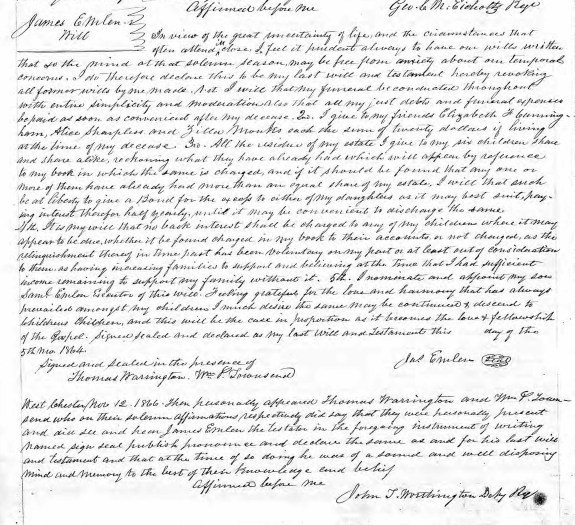 Affirmed before me Geo. C. M. Eicholtz Regr
James Emlen's
Will
In view of the great uncertainty of life, and the circumstances that
often attend its close, I feel it prudent always to have our wills written
that so the mind at that solemn season, may be free from anxiety about our temporal
concerns. I do therefore declare this to be my last will and testament hereby revoking
all former wills by me made. 1st. I will that my funeral be conducted throughout
with entire simplicity and moderation. Also that all my just debts and funeral expenses
be paid as soon as convenient after my decease. 2nd. I give to my friends Elizabeth F. Cunning-
ham, Alice Sharpless and Zilla Monks each the sum of twenty dollars if living
at the time of my decease. 3rd. All the residue of my estate I give to my six children share
and share alike, reckoning what they have already had which will appear by reference
to my book in which the same is charged, and if it should be found that any one or
more of them have already had more than an equal share of my estate, I will that such
be at liberty to give a Bond for the excess to either of my daughters as it may best suit, pay-
ing interest therefor half yearly, until it may be convenient to discharge the same.
4th. It is my will that no back interest shall be charged to any of my children where it may
appear to be due, whether it be found charged in my book to their accounts or not charged, as the
relinquishment thereof in time past has been voluntary on my part or at least out of consideration
to them as having increasing families to support and believing at the time that I had sufficient
income remaining to support my family without it. 5th. I nominate and appoint my son
Saml. Emlen Executor of this will. Feeling grateful for the love and harmony that has always
prevailed amongst my children I much desire the same may be continued & descend to
Childrens Children, and this will be the case in proportion as it becomes the love & fellowship
of the Gospel. Signed sealed and declared as my last Will and Testament this day of the
5th mo. 1864.
Signed and sealed in the presence of Jas Emlen Seal
Thomas Warrington. Wm P. Townsend
West Chester Nov 12. 1866. Then personally appeared Thomas Warrington and Wm P. Town-
send who on their solemn affirmations, respectively did say that they were personally present
and did see and hear James Emlen the testator in the foregoing instrument of writing
named, sign seal publish pronounce and declare the same as and for his last will
and testament and that at the time of so doing he was of a sound and well disposing
mind and memory to the best of their knowledge and belief
Affirmed before me
John T. Worthington Depy Regr